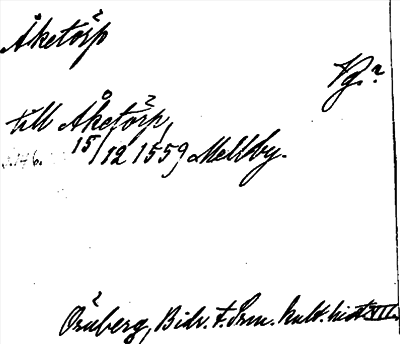 Åketorp
Pg.?
till Åketorp,
15/12 1559, Mellby.
Bidr. t. Sm. kult. hist. XII.